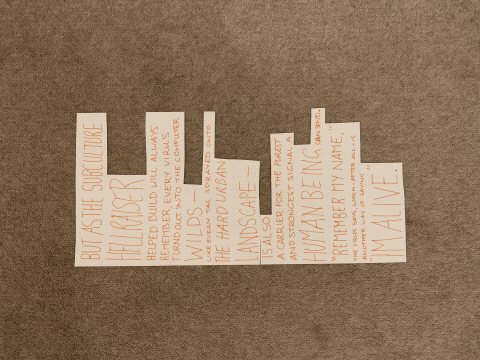 BUT AS THE SUBCULTURE
HELLRAISER
HELPED BUILD WILL ALWAYS
REMEMBER, EVERY VIRUS
TURNED OUT INTO THE COMPUTER
WILDS —
LIKE EVERY TAG SPRAYED ONTO
THE HARD URBAN
LANDSCAPE —
IS ALSO
A CARRIER FOR THE FIRST
AND STRONGEST SIGNAL A
HUMAN BEING CAN SEND.
"REMEMBER MY NAME,"
THE VIRUS SAYS, WHICH - AFTER ALL - IS
ANOTHER WAY OF SAYING
"I'M ALIVE."